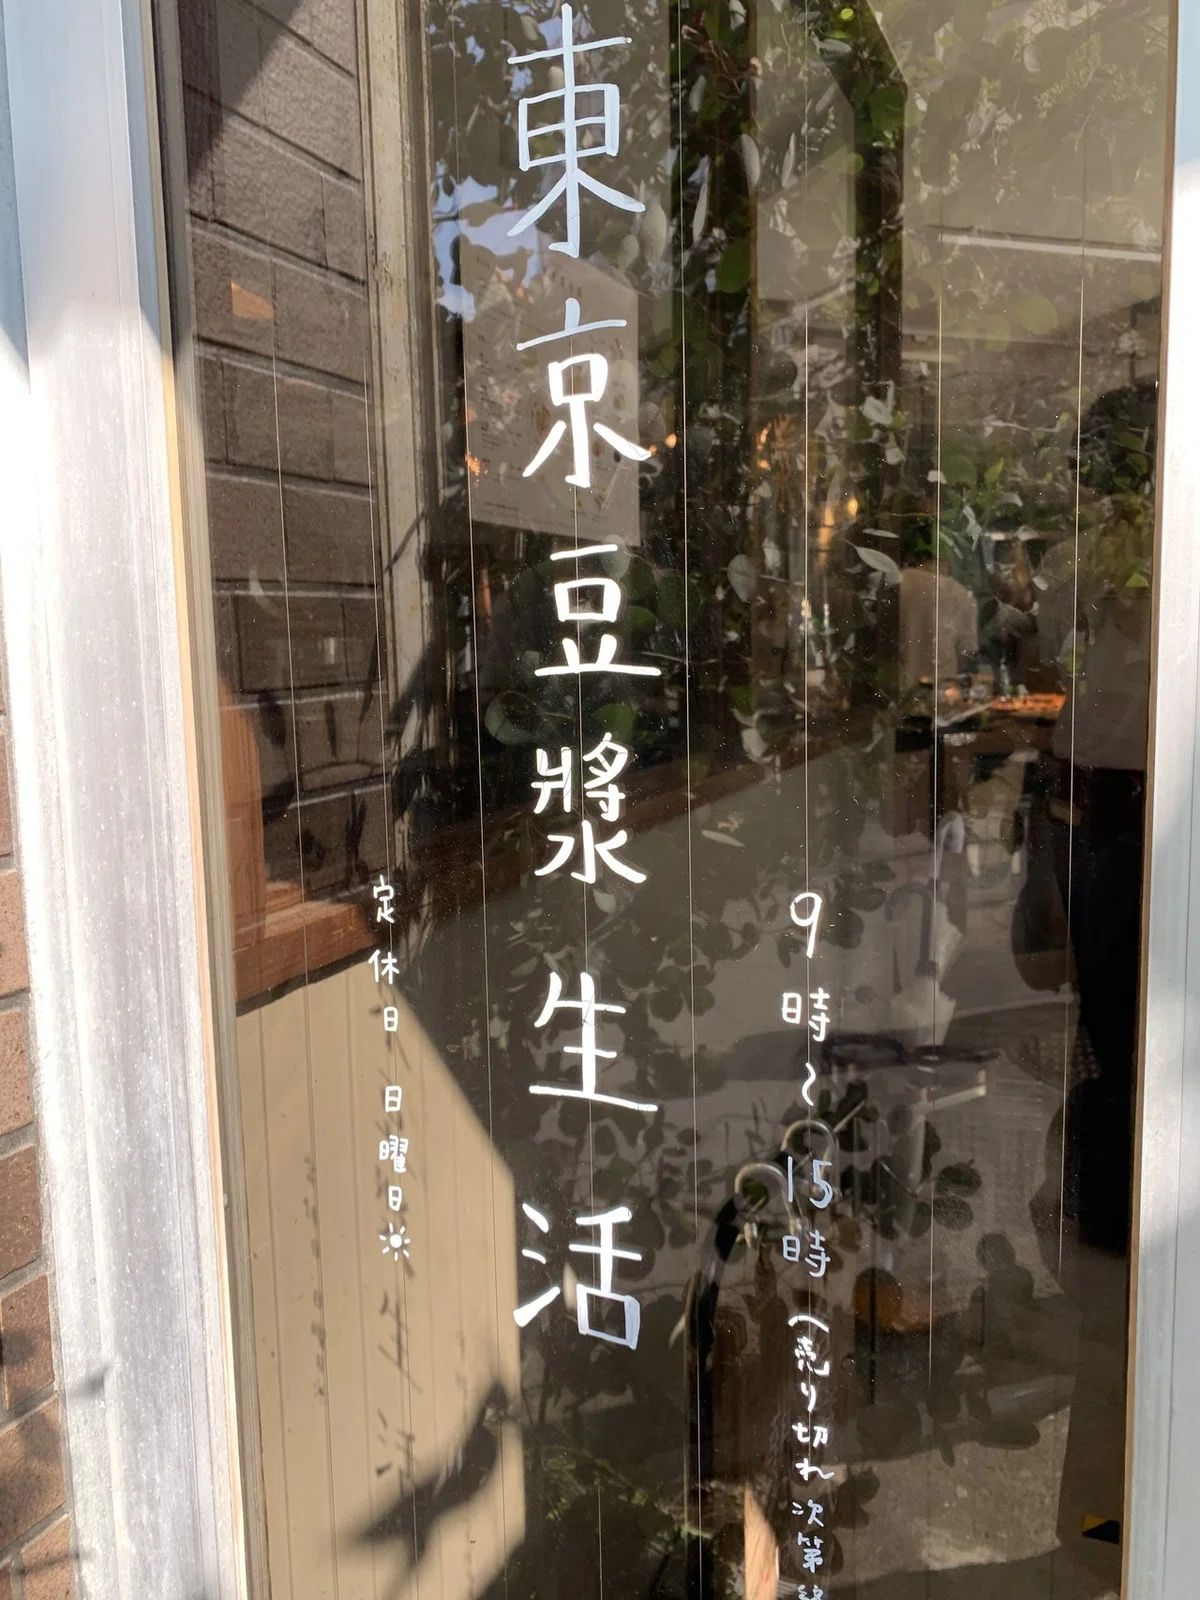 9時〜15時(売り切れ次第終
東京豆漿生活
定休日 日曜日